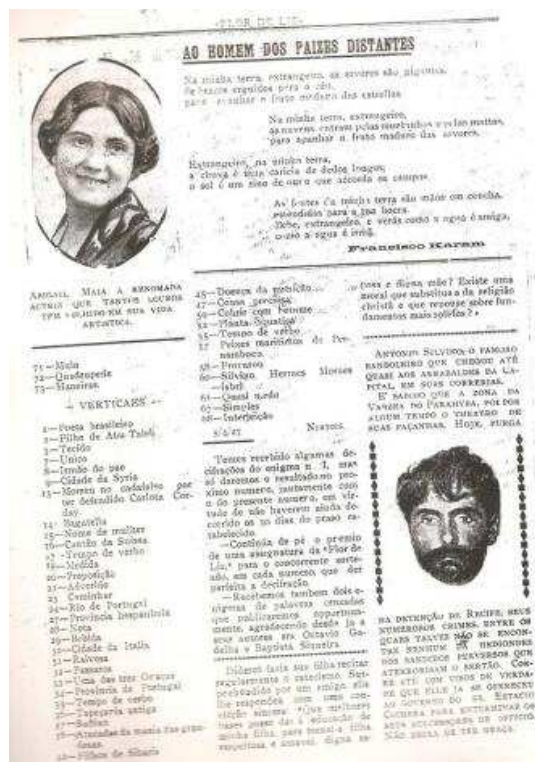 FLOR DE LIZ
AO HOMEM DOS PAIZES DISTANTES
Na minha terra, extrangeiro, as arvores são
de braços erguidos para o céu,
para apanhar o fruto maduro das estrellas
Na minha terra, extrangeiro,
as nuvens entram pelas mattas,
para apanhar o fruto maduro das arvores.
Extrangeiro, na minha terra,
a chuva é uma caricia de dedos longos;
o sol é um sino de ouro que accorda os campos
As fontes da minha terra são mãos em concha,
estendidas para a tua bocca.
Bebe, extrangeiro, e verás como a agua é amiga,
como a agua é irmã.
Francisco Karam
ABIGAIL MAIA A RENOMADA
ACTRIZ QUE TANTOS LOUROS
TEM COLHIDO EM SUA VIDA
ARTISTICA.
71—Mula
72—Quadrupede
73—Maneiras.
— VERTICAES —
1—Poeta brasileiro
2—Filho de Abu
3—Tecido
7—Unico
8—Irmão do pae
9—Cidade da Syria
13—Morreu no cadafalso por
ter defendido Carlota Cor-
day.
14—Bagatella
15—Nome de mulher
16—Cantão da Suissa
17—Tempo de verbo
18—Medida
20—Preposição
21—Adverbio
23 Caminhar
24—Rio de Portugal
27—Provincia hespanhola
28—Nota
29—Bebida
30—Cidade da Italia
31—Raivosa
32—Passaros
33—Uma das tres Graças
34—Provincia de Portugal
35—Tempo de verbo
Tapeçaria antiga
Atacadas da mania das gran-
dezas.
Filhos de Sibaris
45—Doença da nutrição
47—Cousa preciosa
50—Cobrir com betume
52—Planta aquatica
55—Tempo de verbo
57 Peixes maritimos de Per-
nambuco.
58—Procurou
60—Silvino Hermes Moraes
Isbel
61—Quasi nada
65—Simples
68—Interjeição
Temos recebido algumas de-
cifrações do enigma n. 1, mas
só daremos o resultado no pro-
ximo numero, juntamente com
o do presente numero, em vir-
tude de não haverem ainda de-
corrido os 20 dias do praso es-
tabelecido.
—Continúa de pé o premio
de uma assignatura da "Flor de
Liz," para o concorrente sorte-
ado, em cada numero, que der
perfeita a decifração.
—Recebemos tambem dois e-
nigmas de palavras cruzadas
que publicaremos opportuna-
mente, agradecendo desde já a
seus autores srs Octavio Ga-
delha e Baptista Siqueira.
Diderot fazia sua filha recitar
regularmente o catecismo. Sur-
prehendido por um amigo, elle
lhe respondeu com uma con-
vicção sincera: "Que melhores
bases posso dar á educação de
minha filha, para tornal-a filha
respeitosa e amavel, digna es-
posa e digna mãe? Existe uma
moral que substitua a da religião
christã e que repouse sobre fun-
damentos mais solidos?»
ANTONIO SILVINO, O FAMOSO
BANDOLEIRO QUE CHEGOU ATÉ
QUASI AOS ARRABALDES DA CA-
PITAL EM SUAS CORRERIAS.
E' SABIDO QUE A ZONA DA
VARZEA DO PARAHYBA, FOI POR
ALGUM TEMPO O THEATRO DE
SUAS FAÇANHAS. HOJE, PURGA
NA DETENÇÃO DE RECIFE, SEUS
NUMEROSOS CRIMES, ENTRE OS
QUAES TALVEZ NÃO SE ENCON-
TRE NENHUM DA HEDIONDEZ
DOS BANDIDOS PERVERSOS QUE
ATERRORISAM O SERTÃO. COR-
RE ATÉ COM VISOS DE VERDA-
DE QUE ELLE JÁ SE OFFERECEU
AO GOVERNO DO ESTACIO
COIMBRA PARA ENTURMAR OS
SEUS DE OFFICIO.
NÃO DEIXA DE TER GRAÇA.